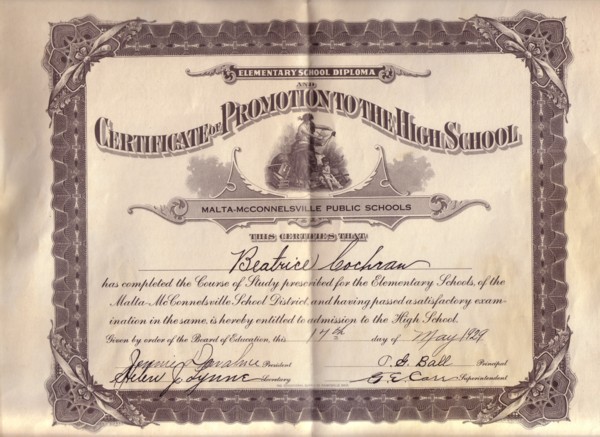 ELEMENTARY SCHOOL DIPLOMA
AND
CERTIFICATE OF PROMOTION TO THE HIGH SCHOOL
MALTA-McCONNELSVILLE PUBLIC SCHOOLS
THIS CERTIFIES THAT
Beatrice Cochran
has completed the Course of Study prescribed for the Elementary Schools, of the
Malta-McConnelsville School District, and having passed a satisfactory exam-
ination in the same, is hereby entitled to admission to the High School.
Given by order of the Board of Education, this 17th day of May 1929
Jennie President Ball Principal
Secretary G. E. Carr Superintendent